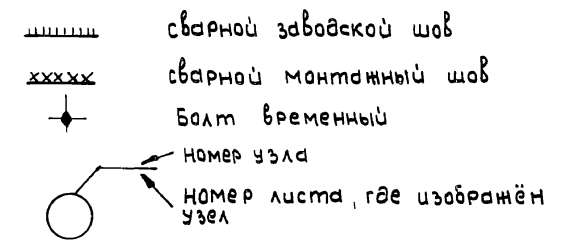 сварной заводской шов
сварной монтажный шов
Болт временный
номер узла
номер листа, где изображён
узел